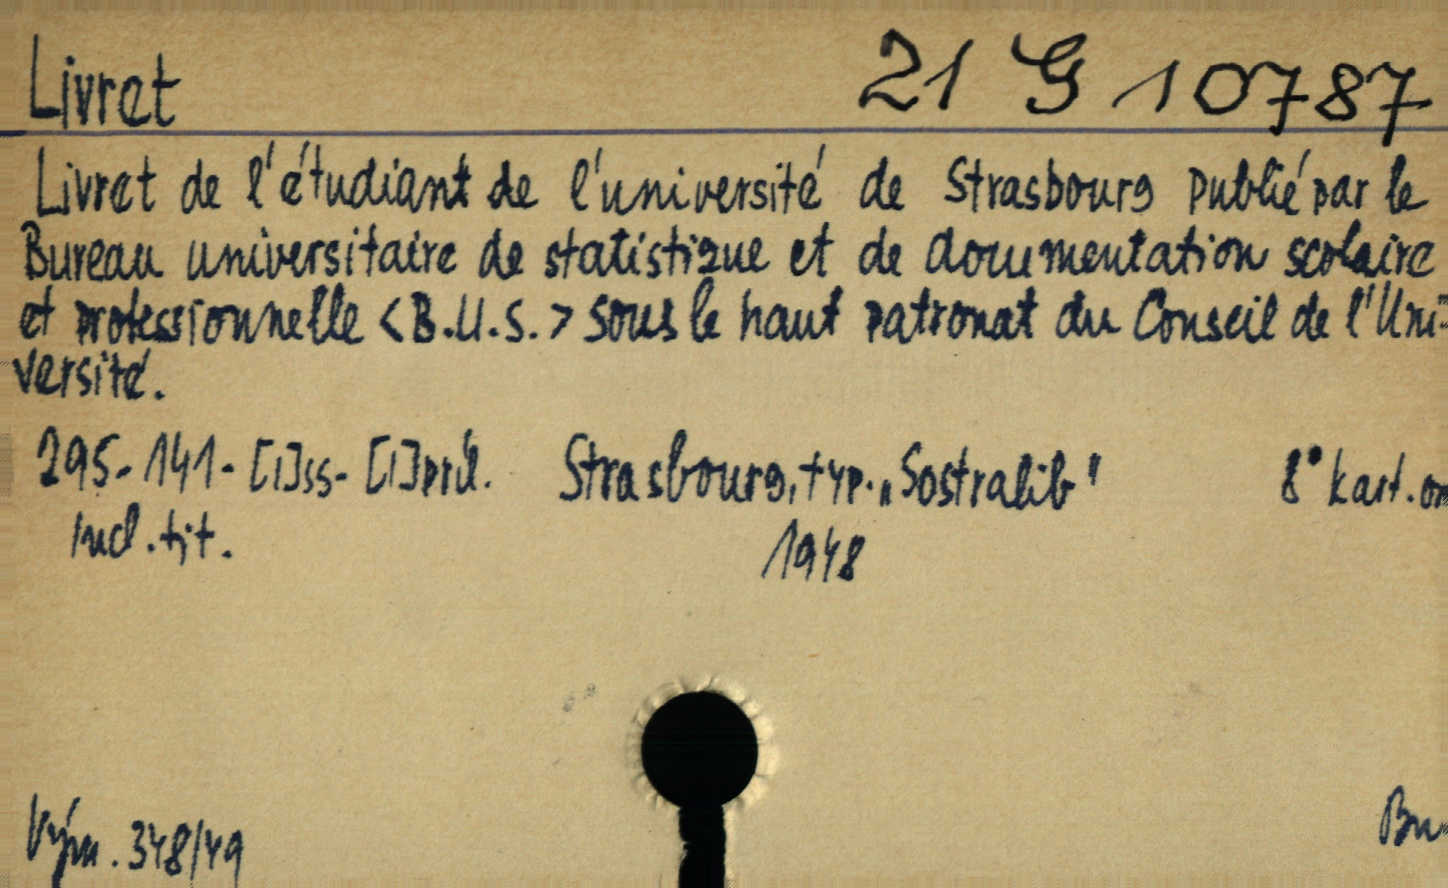 Livret 21 G 10787
Livret de l'étudiant de l'université de Strasbourg publié par le
Bureau universitaire de statistique et de documentation scolaire
et professionnelle <B.U.S.> sous le haut patronat du Conseil de l'Uni-
versité.
295-141-[1]ss-[1]příl. Strasbourg, typ. „Sostralib" 8° kart.
Incl. tit. 1948
Vým. 348/49